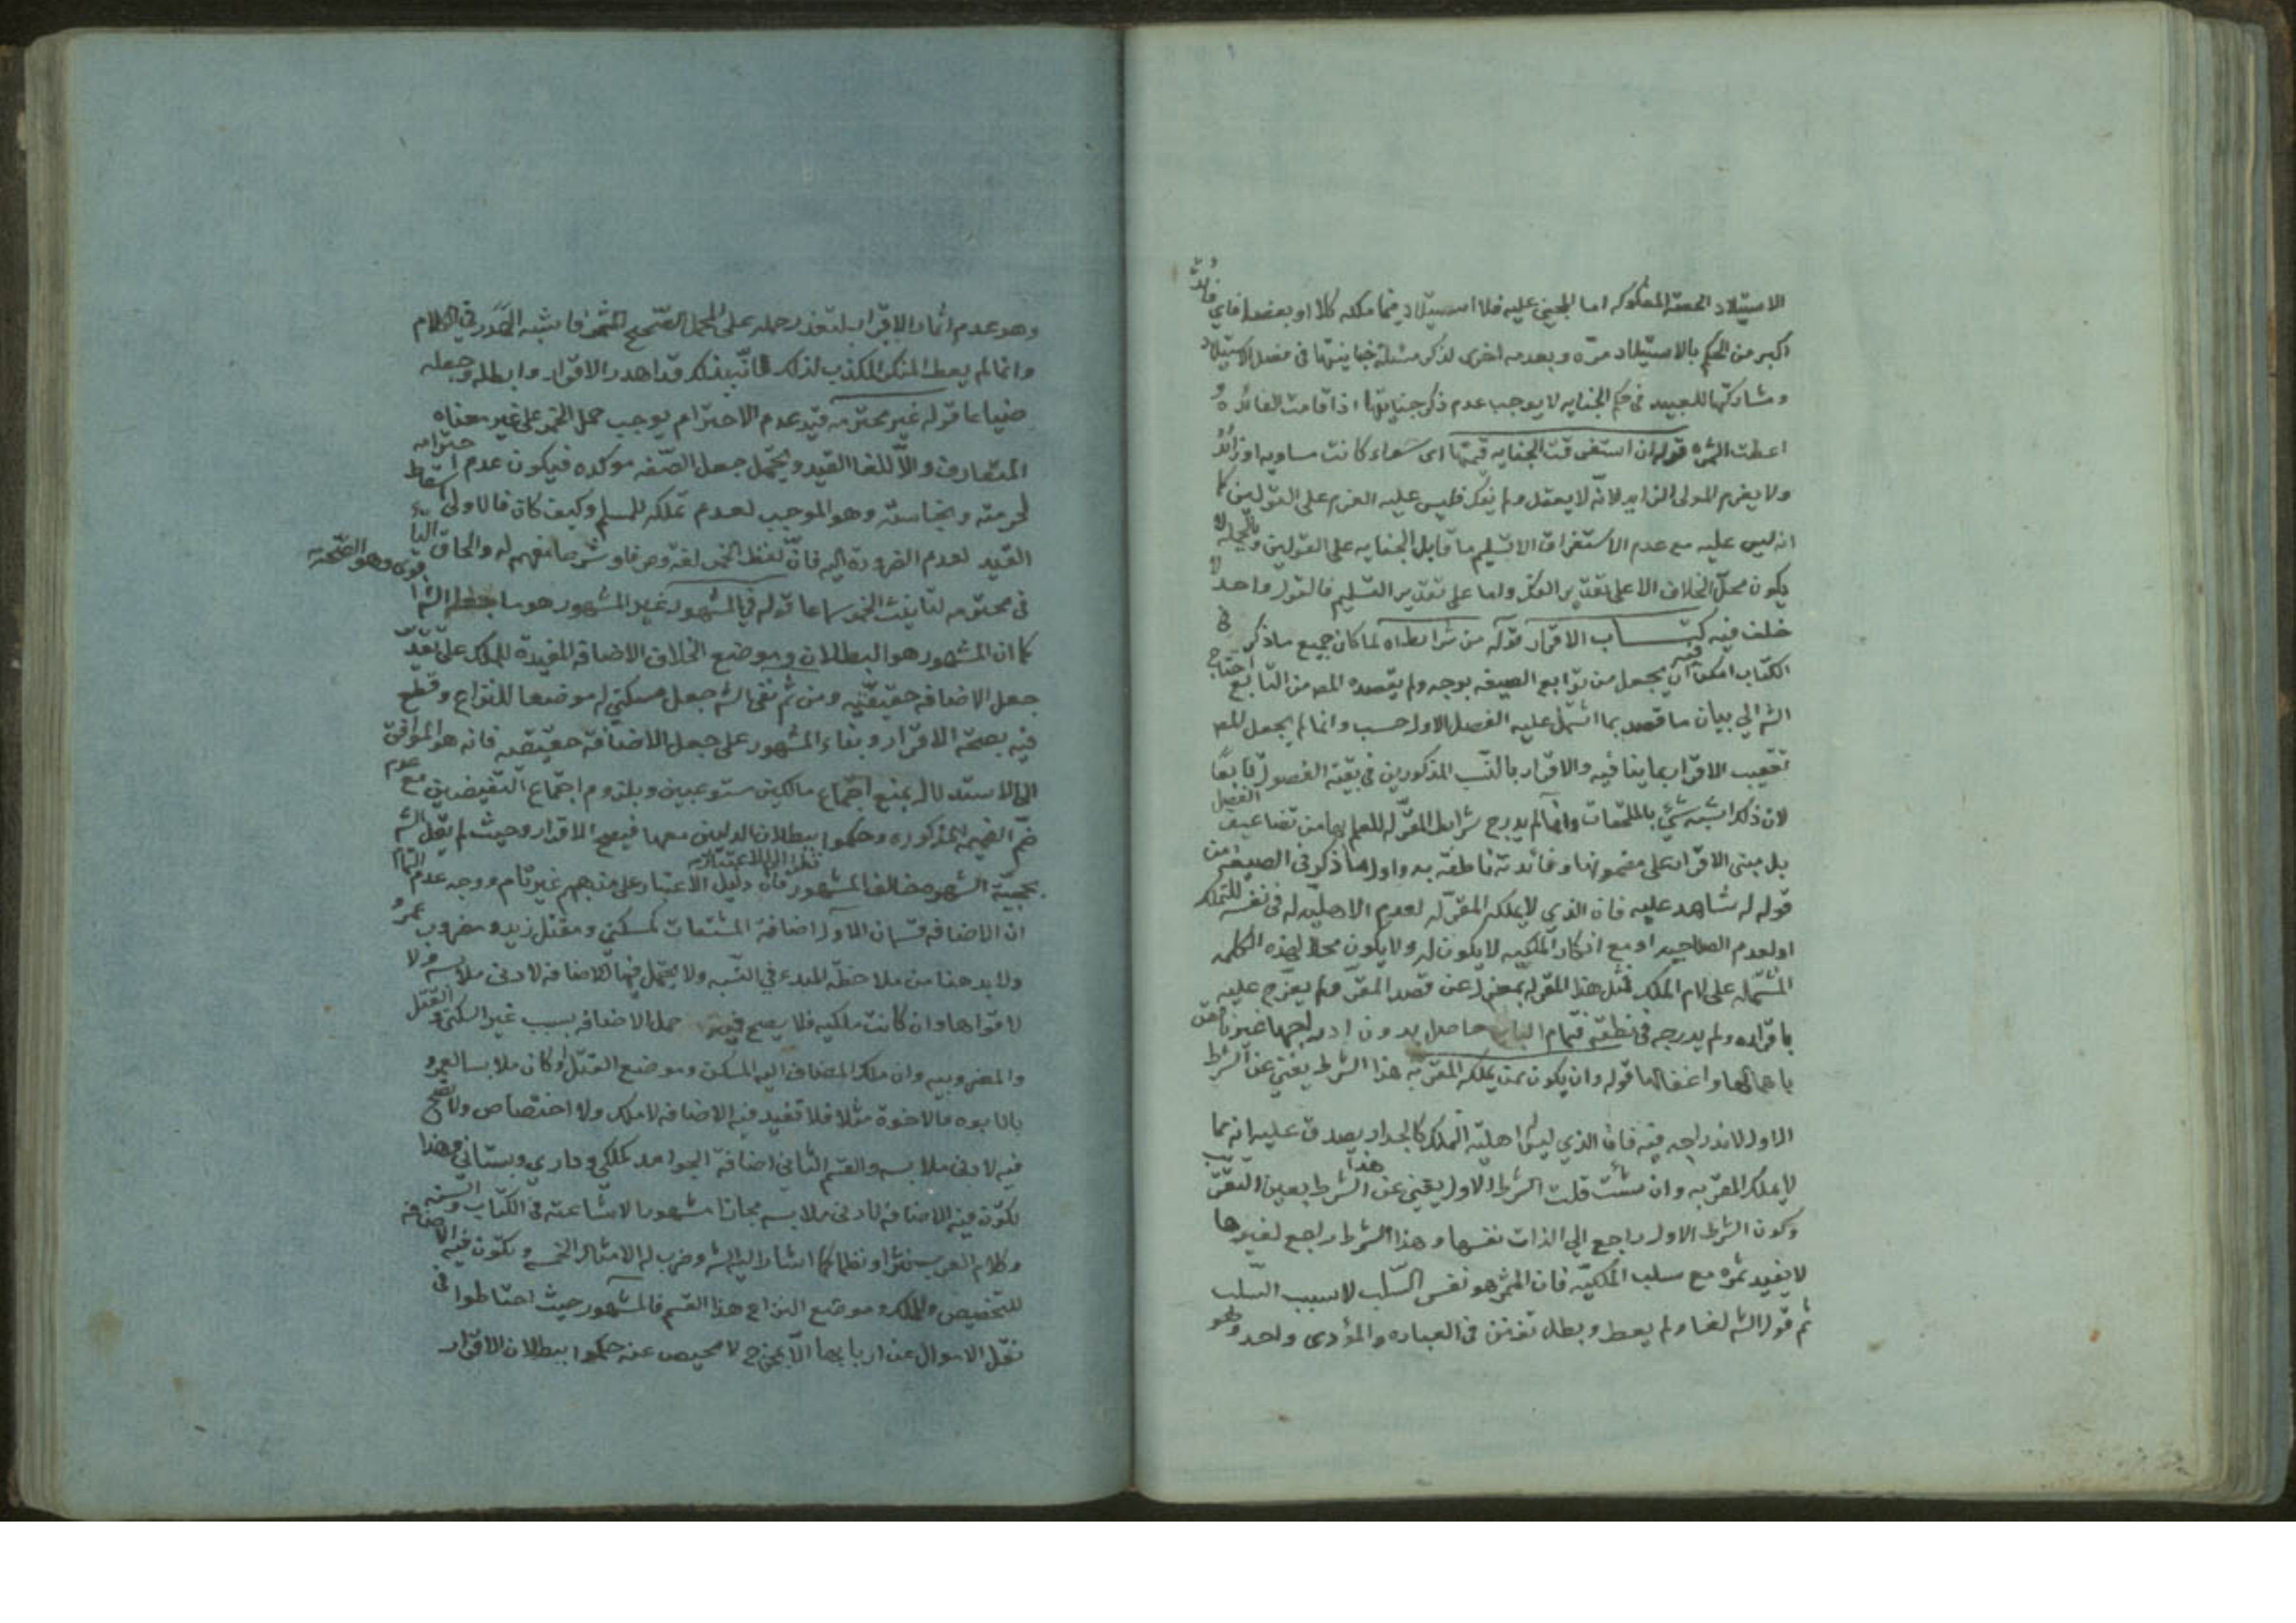 الاستيلاد الحصة المملوكه اما المجني عليه فلا استيلاد فيما ملكه كلا او بعضا فاي فائدة
اكبر من الحكم بالاستيلاد مرّه وبعدمه اخرى لذكر مسئلة جنايتها في فصل الاستيلاد
ومشاركتها للعبيد في حكم الجنايه لا يوجب عدم ذكر جنايتها اذا قامت الفائده و
اعطت الثمره قوله ان استغرقت الجنايه قيمتها اى سواء كانت مساويه او زائدة
ولا يغرم المولى الزايد لانّه لا يعقل ولم يفكّ فليس عليه الغرم على القولين كما
انه ليس عليه مع عدم الاستغراق الا تسليم ما قابل الجنايه على القولين وبالجمله لا
يكون محلّ الخلاف الا على تقدير الفك واما على تقدير التسليم فالقول واحد لا
خلف فيه كتاب الاقرار قوله من شرايطه لما كان جميع ما ذكر في
الكتاب امكن فيه ان يجعل من توابع الصيغه بوجه ولم يقصده المص من التابع احتاج
الش الي بيان ما قصد بما اشتمل عليه الفصل الاول حسب وانما لم يجعل المص
تعقيب الاقرار بما ينافيه والاقرار بالنسب المذكورين في بقية الفصول تابعًا
لان ذلك اشبه شيء بالملحقات وانما لم يدرج شرايط المقرّ له للعلم بها من تضاعيف الفصل
بل مبنى الاقرار على مضمونها وفائدته ناطقة به واول ما ذكر في الصيغه من
قوله له شاهد عليه فان الذي لا يملك المقرّ له لعدم الاهليّه له في نفسه للتملك
او لعدم الصلاحيه او مع انكار الملكيه لا يكون له ولا يكون محلا لهذه الكلمه
المشتمله على لام الملك فمثل هذا المقرّ له بمعزل عن قصد المقرّ ولم يعرّج عليه
باقراره ولم يدرجه في نطقه فتمام الباب حاصل بدون ادراجها غير ناقص
باهمالها واغفالها قوله وان يكون ممن يملك المقرّ به هذا الشرط يغني عن الشرط
الاول لاندراجه فيه فان الذي ليس له اهليّة التملك كالجدار يصدق عليه انه مما
لا يملك المقرّ به وان شئت قلت الشرط الاول يغني عن هذا الشرط بعين التقريب
وكون الشرط الاول راجع الي الذات نفسها وهذا الشرط راجع لغيرها
لا يفيد ثمره مع سلب الملكيّه فان المثمر هو نفس السّلب لا سبب السّلب
ثم قول الش لغا ولم يعط وبطل تفنن في العباره والمؤدى واحد وهو
وهو عدم اثمار الاقرار لتعذر حمله على المحمل الصّحيح المثمر فاشبه الهذر في الكلام
وانما لم يعط المنكر المكذب لذلك فانّه بذلك قد اهدر الاقرار وابطله وجعله
ضياعا قوله غير محترمه قيد عدم الاحترام يوجب حمل الخمر على غير معناه
المتعارف والا للغا القيد ويحتمل جعل الصّفه موكده فيكون عدم احترامه
لحرمته ونجاسته وهو الموجب لعدم تملكه للمسلم وكيف كان فالاولى اسقاط
القيد لعدم الضرورة اليه فانّ لفظ الخمر لغة وعرفا وشرعا مفهم له والحاق التا
في محترمه لتانيث الخمر سماعا قوله في المشهور غير المشهور هو ما جعله الش اقوى وهو الصّحة
كما ان المشهور هو البطلان وموضع الخلاف الاضافه المفيدة للملك على تقدير
جعل الاضافه حقيقيّه ومن ثم نفى الش جعل مسكني له موضعا للنزاع وقطع
فيه بصحّة الاقرار وبناء المشهور على جعل الاضافة حقيقيه فانه هو الموافق
الى الاستدلال بمنع اجتماع مالكين مستوعبين وبلزوم اجتماع النّقيضين مع عدم
ضمّ الضميمه المذكوره وحكموا ببطلان الدليلين معها فيصح الاقرار وحيث لم يقل الش
بحجيّة الشهره خالف المشهور نظرا الى الاعتبار فان دليل الاعتبار على مذهبهم غير تام ووجه عدم التمام
ان الاضافه قسمان الاول اضافة المشتقات كمسكني ومقتل زيد ومضروب عمرو
ولا بد هنا من ملاحظة المبدء في النّسبه ولا يحتمل فيها الاضافه لادنى ملابسه ولا
لاقواها وان كانت ملكيه فلا يصح فيه حمل الاضافه بسبب غير السكنى والقتل
والمضروبيه وان ملك المضاف اليه المسكن وموضع القتل او كان ملابسا لعمرو
بالابوه والاخوة مثلا فلا تفيد فيه الاضافه لا ملك ولا اختصاص ولا تصح
فيه لادنى ملابسه والقسم الثاني اضافة الجوامد كملكي وداري وبستاني وهذا
تكون فيه الاضافه لادنى ملابسه مجازا مشهورا لاشاعته في الكتاب والسنه
وكلام العرب نثرا ونظما كما اشار اليه الش وضرب له الامثال الخمسه وتكون فيه الاضافه
للتخصيص والملك وموضع النزاع هذا القسم فالمشهور حيث احتاطوا في
نقل الاموال عن اربابها الا بمخرج لا محيص عنه حكموا ببطلان الاقرار